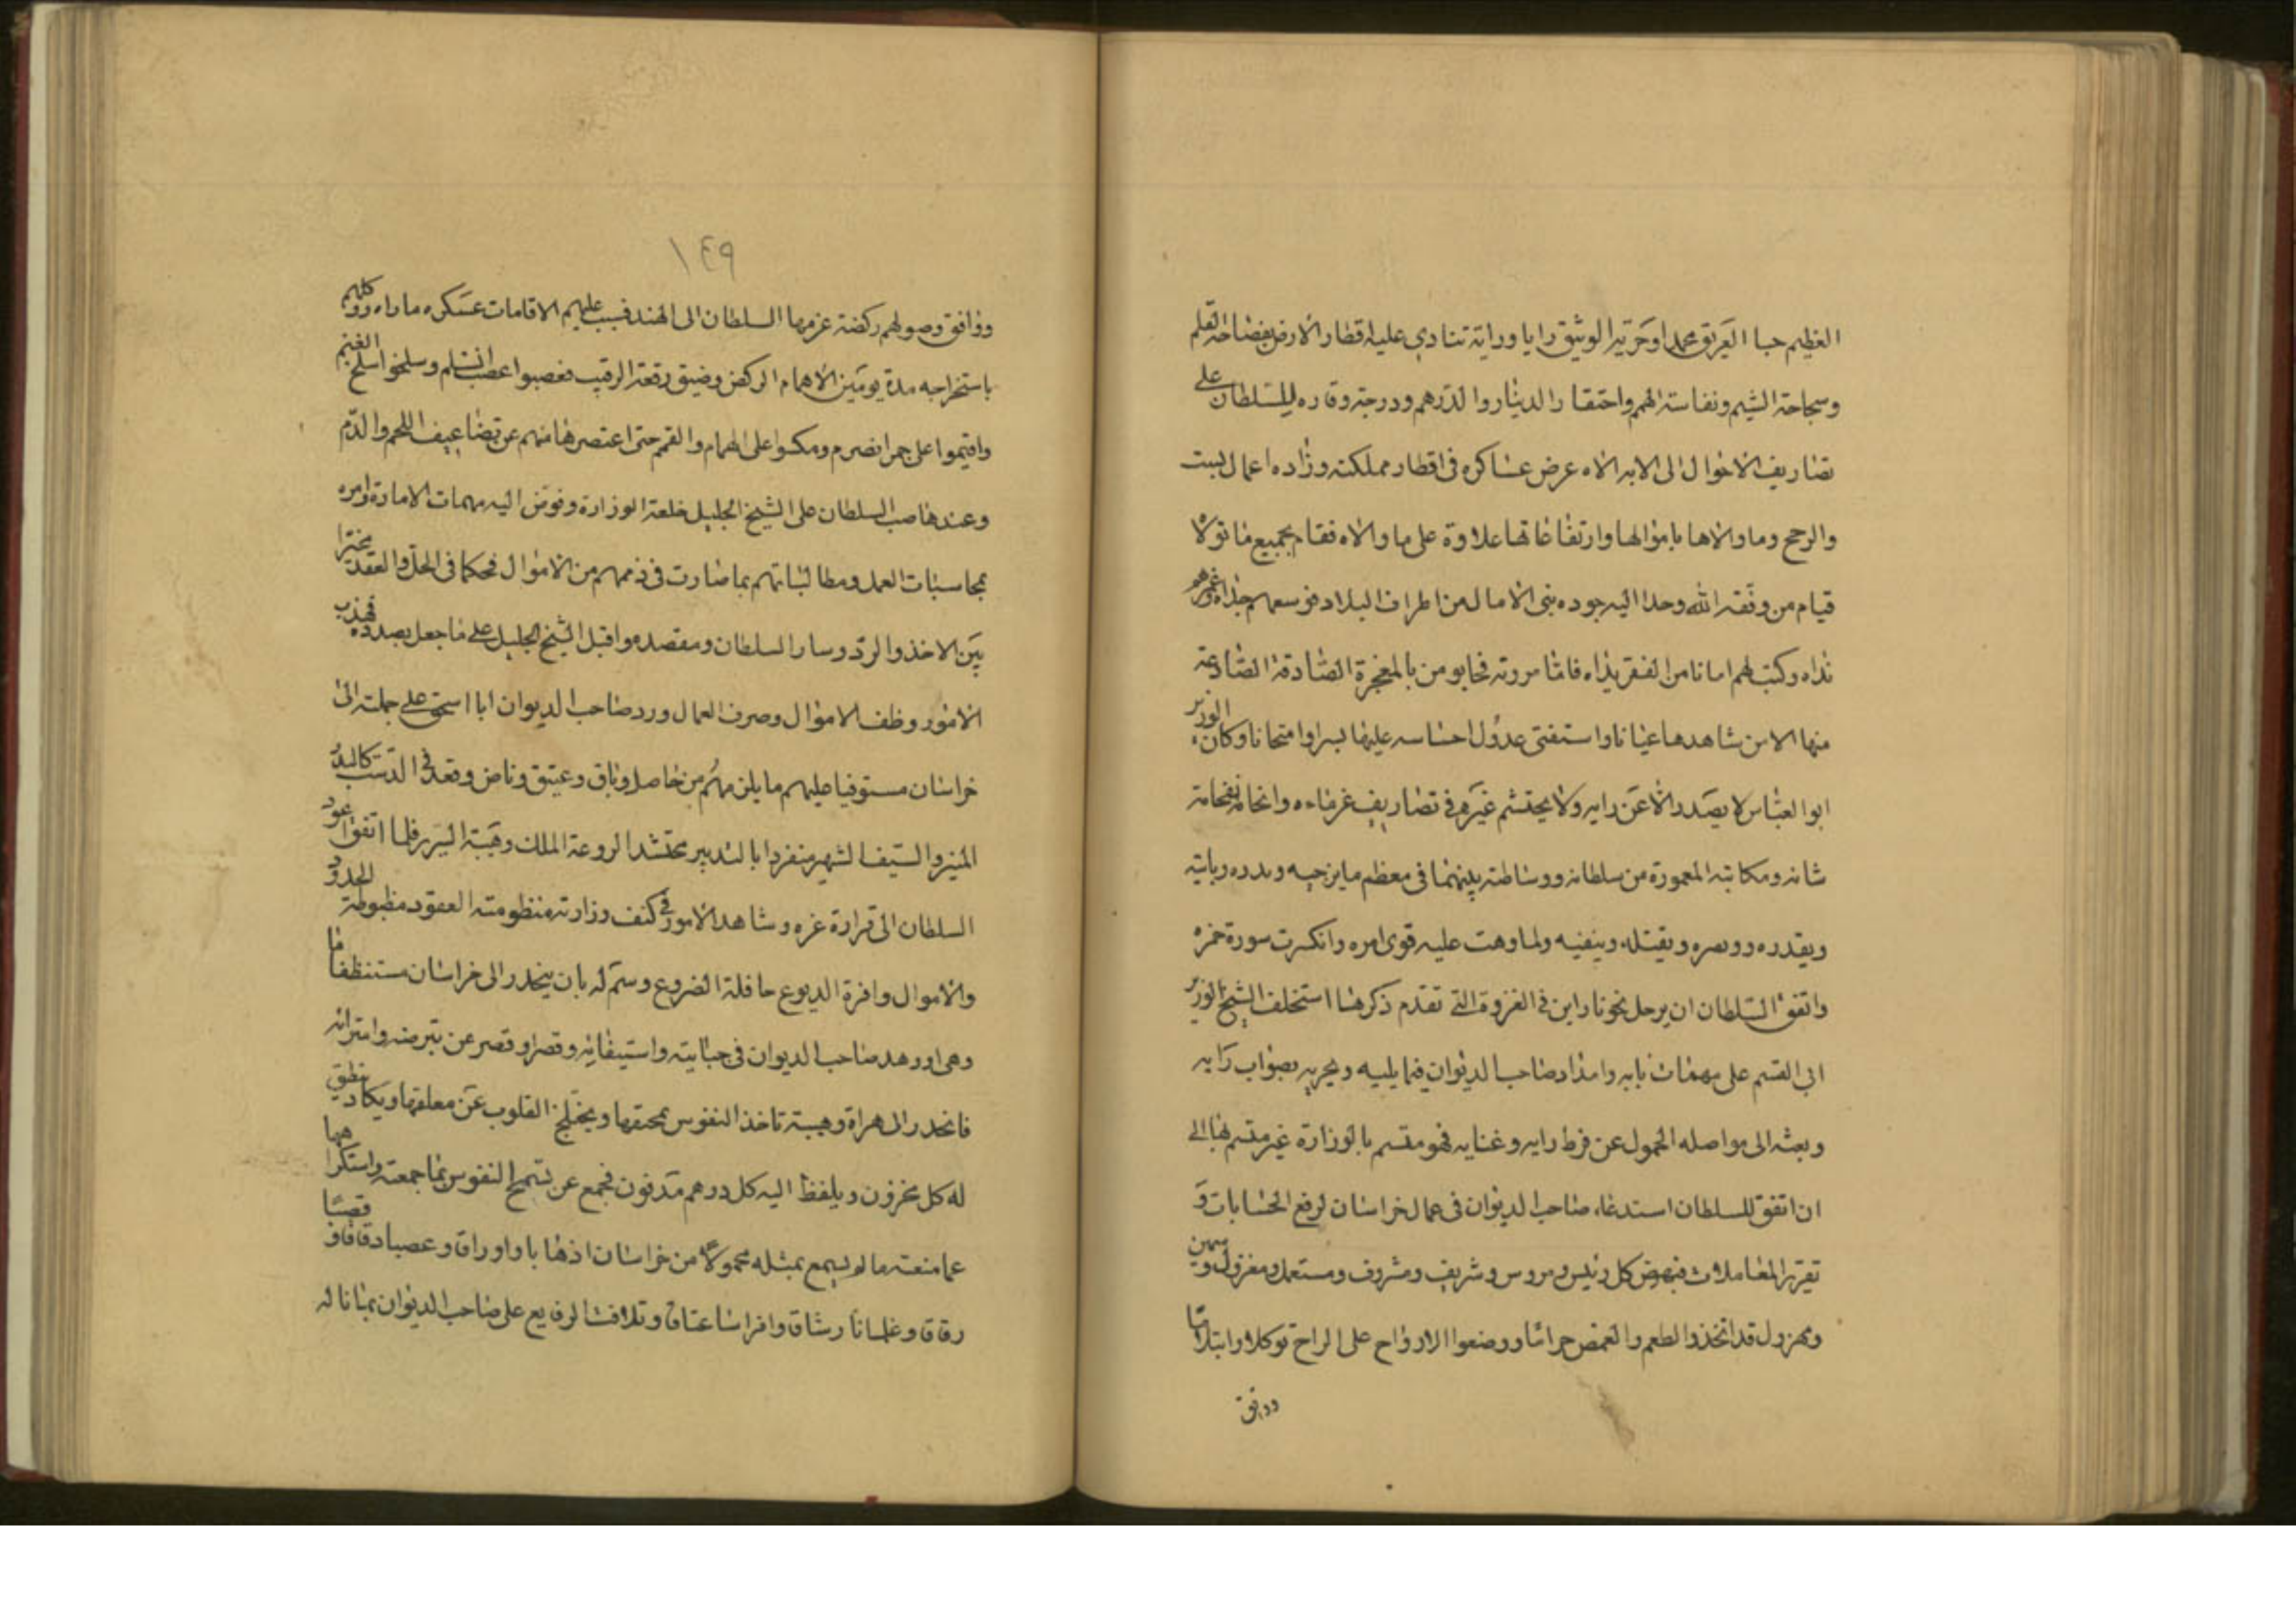 العظيم حبا العريق محمدا وحريته الوثيق رايا وراية تنادي عليه اقطار الارض بفصاحة القلم
وسجاحة الشيم ونفاسة الهمم واحتقار الدينار والدرهم ودرجة وقاره للسلطان على
تصاريف الاحوال الى الابه الاه عرض عساكره في اقطار مملكته وزاده اعمال لبست
والرحج وما والاها باموالها وارتفاعاتها علاوة على ما والاه فقام بجميع ما تولاه
قيام من وفقه الله وحدا اليه جوده بني الامال من اطراف البلاد فوسعهم جذاه وغمرهم
نداه وكتب لهم امانا من الفقر يداه فاما مروته فحابو من بالمعجزة الصادقة الصادعة
منها الا من شاهدها عيانا واستفتى عدول احساسه عليها لبرا وامتحانا وكان الوزير
ابو العباس لا يصدر الا عن رايه ولا يحتشم غيره في تصاريف غرماءه وانحانه لفخامة
شانه ومكاتبته المعمورة من سلطانه ووساطته بينهما في معظم ما يزجيه ويدره وباتيه
ويقدره ويقتله وينفيه ولما وهت عليه قوى امره وانكسرت سورة خمره
واتفق السلطان ان يرحل نحو ناراين في الغزوة التي تقدم ذكرها استخلف الشيخ الوزير
ابي القسم على مهمات بابه وامداد صاحب الديوان فيما يليه ويجريه بصواب رايه
وبعثه الى مواصله الحمول عن فرط رايه وغنايه فهو مقسم بالوزارة غير متسم بها الى
ان اتفق للسلطان استدعاء صاحب الديوان في عمال خراسان لرفع الحسابات و
تقرير المعاملات فنهض كل رئيس ومروس وشريف ومشروف ومستعمل ومعزول وسمين
ومهزول قد اتخذوا لطعم والغمض حراما ووضعوا الارواح على الراح توكلا وابتلاما
ووافق
١٤٩
ووافق وصولهم ركضة عزمها السلطان الى الهند فسبب عليهم الاقامات عسكره ما راه ووكلهم
باستخراجه مدة يومين الاهمام الركض وضيق رقعة الرقيب فعصبوا عصب السلم وسلخوا سلخ الغنم
واقيموا على جمر انضرم ومكسوا على الهمام والقمم حتى اعتصرها منهم عن تضاعيف اللحم والدم
وعندها صب السلطان على الشيخ الجليل خلعة الوزارة وفوض اليه مهمات الامارة وامره
بمحاسبات العمل ومطالباتهم بما صارت في ذممهم من الاموال فحكما في الحل والعقد مخيرا
بين الاخذ والرد وسار السلطان ومقصده واقبل الشيخ الجليل على ما جعل بصدده فهذب
الامور وظف الاموال وصرف العمال ورد صاحب الديوان ابا اسحق على جملته الى
خراسان مستوفيا عليهم ما يلزمهم من حاصل وباق وعتيق وناض وقعد في الدست كالبدر
المنير والسيف الشهير منفردا بالتدبير محتشدا لروعة الملك وهيبة السرير فلما اتفق عود
السلطان الى قرارة عزه وشاهد الامور في كنف وزارته منظومة العقود مضبوطة الحدود
والاموال وافرة الديوع حافلة الضروع وسم له بان ينحدر الى خراسان مستنظفا ما
وهى اورهد صاحب الديوان في جبايته واستيفائه وقصرا وقصر عن تبرضه وامترائه
فانحدر الى هراة وهيبته تاخذ النفوس بمخنقها ويختلج القلوب عن معلقها ويكاد ينطق
له كل مخزون ويلفظ اليه كل درهم مدفون فجمع عن تسمح النفوس بما جمعته واستكراهها
عما منعته ما لم يسمع بمثله محمولا من خراسان اذهابا واوراق وعصبا دقاقا وقصبا
رقاق وغلمانا رشاق وافراسا عتاق وتلافت الرفايع على صاحب الديوان بما ناله